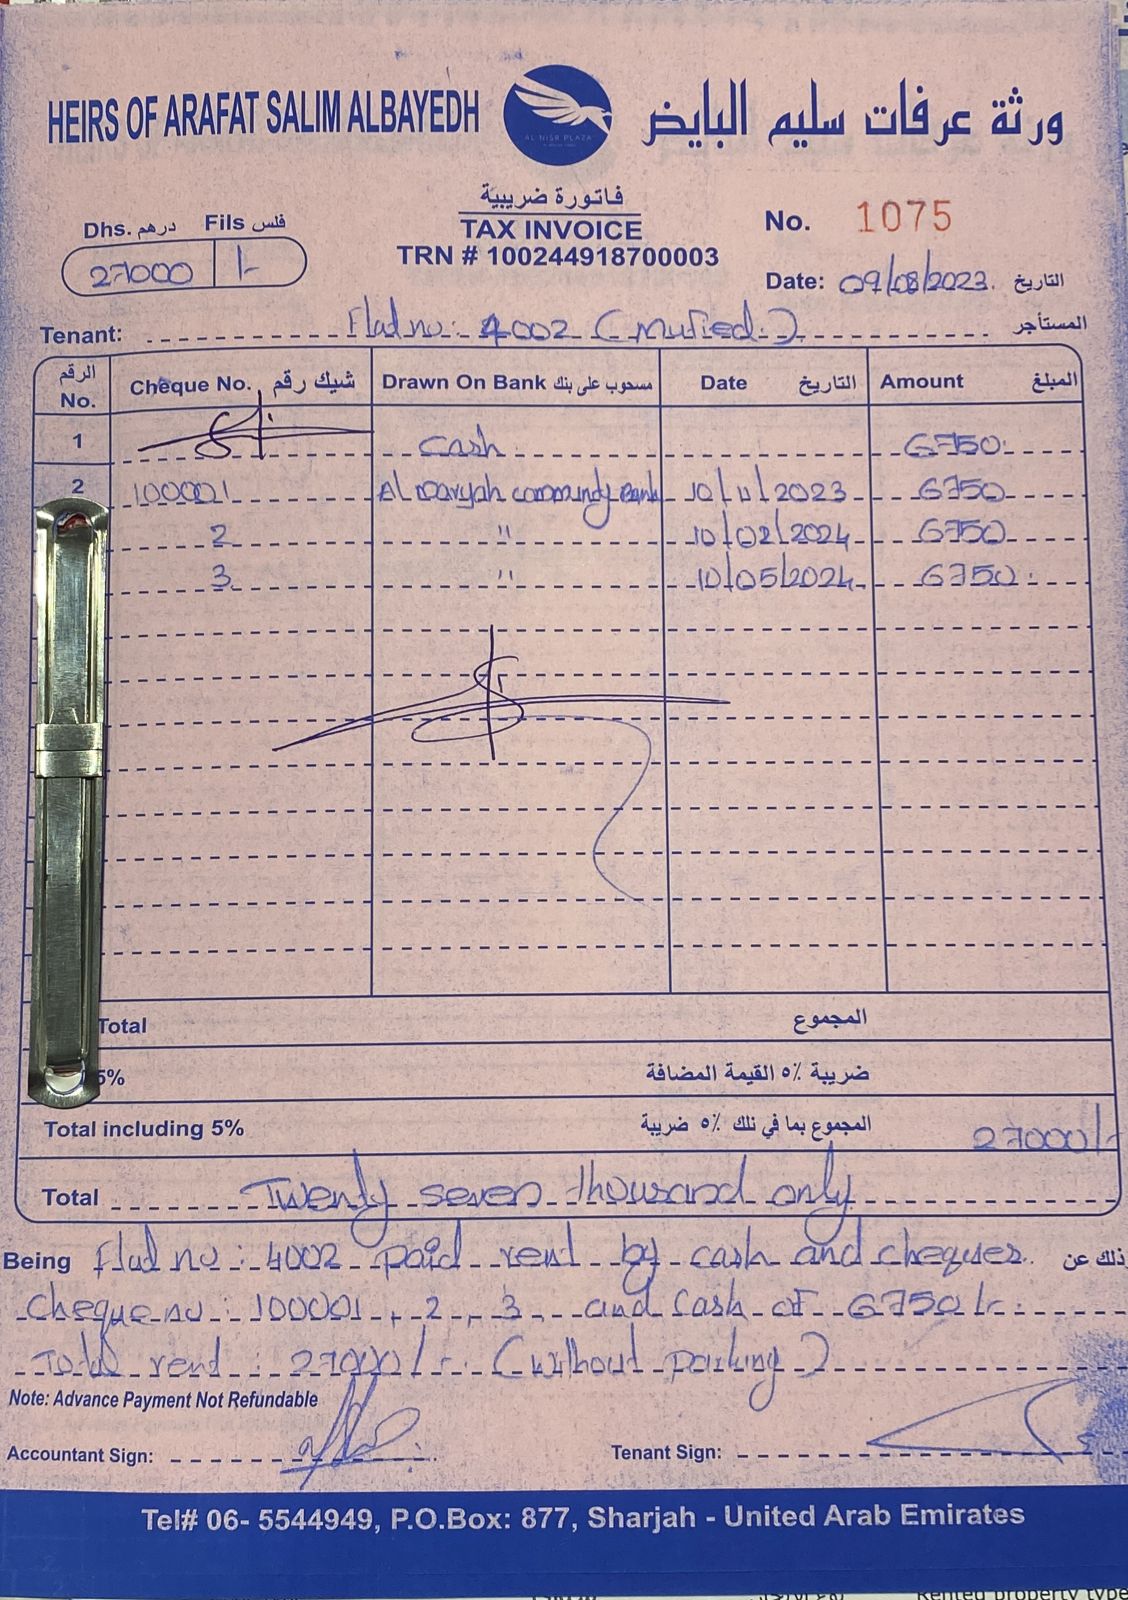 HEIRS OF ARAFAT SALIM ALBAYEDH
AL NISR PLAZA
ورثة عرفات سليم البايض
فاتورة ضريبية
TAX INVOICE
TRN # 100244918700003
Dhs. درهم Fils فلس
27000 /-
No. 1075
Date: 09/08/2023. التاريخ
Tenant: Flat no: 4002 (Mufied.) المستأجر
الرقم No. Cheque No. شيك رقم Drawn On Bank مسحوب على بنك Date التاريخ Amount المبلغ
1 Cash 6750.
2 100001 Al Maryah community Bank 10/11/2023 6750
2 " 10/02/2024 6750
3 " 10/05/2024 6750.
Total المجموع
5% ضريبة ٥٪ القيمة المضافة
Total including 5% المجموع بما في ذلك ٥٪ ضريبة 27000/-
Total Twenty seven thousand only
Being Flat no: 4002 paid rent by cash and cheques. وذلك عن
Cheque no: 100001, 2, 3 and cash of 6750/-.
Total rent: 27000/-. (without parking)
Note: Advance Payment Not Refundable
Accountant Sign: Tenant Sign:
Tel# 06- 5544949, P.O.Box: 877, Sharjah - United Arab Emirates
Rented property type